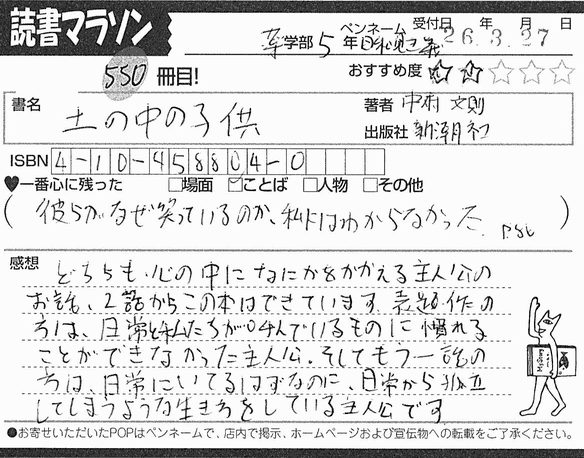 読書マラソン
ペンネーム 受付日 年 月 日
薬学部5年 26.3.27
550冊目!
おすすめ度 ☆☆☆☆☆
書名
土の中の子供
著者 中村文則
出版社 新潮社
ISBN 4-10-458804-0
♥一番心に残った □場面 ☑ことば □人物 □その他
(彼らがなぜ笑っているのか、私にはわからなかった。)
感想
どちらも心の中になにかをかかえる主人公の
お話、2話からこの本はできています。表題作の
方は、日常と私たちがよんでいるものに慣れる
ことができなかった主人公。そしてもう一話の
方は、日常にいてるはずなのに、日常から孤立
してしまうような生き方をしている主人公です
●お寄せいただいたPOPはペンネームで、店内で掲示、ホームページおよび宣伝物への転載をご了承ください。